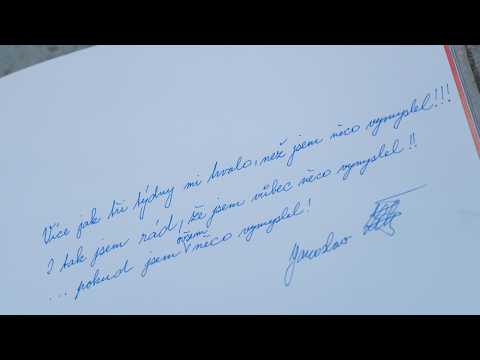 Více jak tři týdny mi trvalo, než jsem něco vymyslel!!!
I tak jsem rád, že jsem vůbec něco vymyslel!!
... pokud jsem ovšem něco vymyslel!
Jaroslav